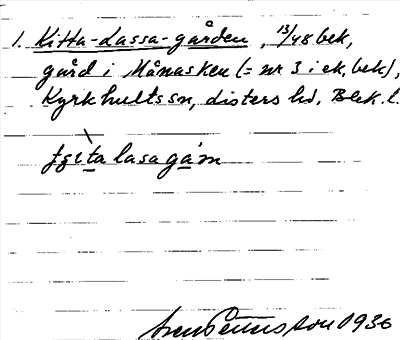 1. Kitta-Lassa-gården, 13/48 bek,
gård i Månasken (= nr 3 i ek. bek),
Kyrkhults sn, Listers hd, Blek. l.
ʃɕìta lasagá̱rn
Sven Benson 1936